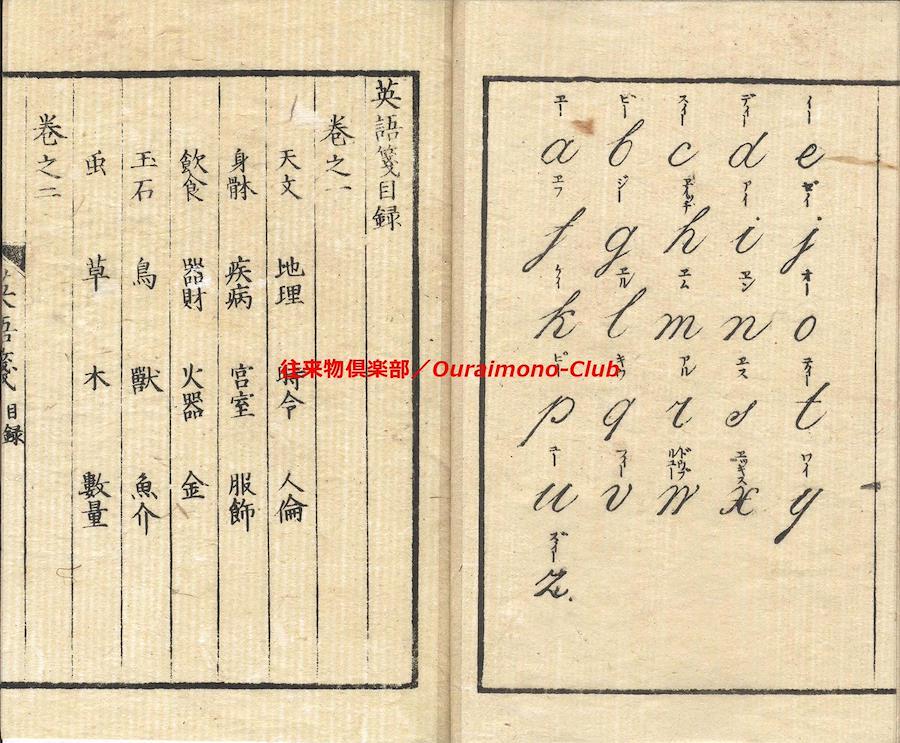 ヱー ビー スィー ディー イー
a b c d e
ヱフ ジー ヱイッチ アイ ゼイ
f g h i j
ケイ ヱル ヱム ヱン オー
k l m n o
ピー キウ アル ヱス ティー
p q r s t
ユー フィー ドゥブルユー ヱッキス ワイ
u v w x y
ズィー
z.
英語箋目録
巻之一
天文 地理 時令 人倫
身骵 疾病 宮室 服飾
飲食 器財 火器 金
玉石 鳥 獸 魚介
虫 草 木 數量
巻之二
英語箋 目録
往来物倶楽部／Ouraimono-Club